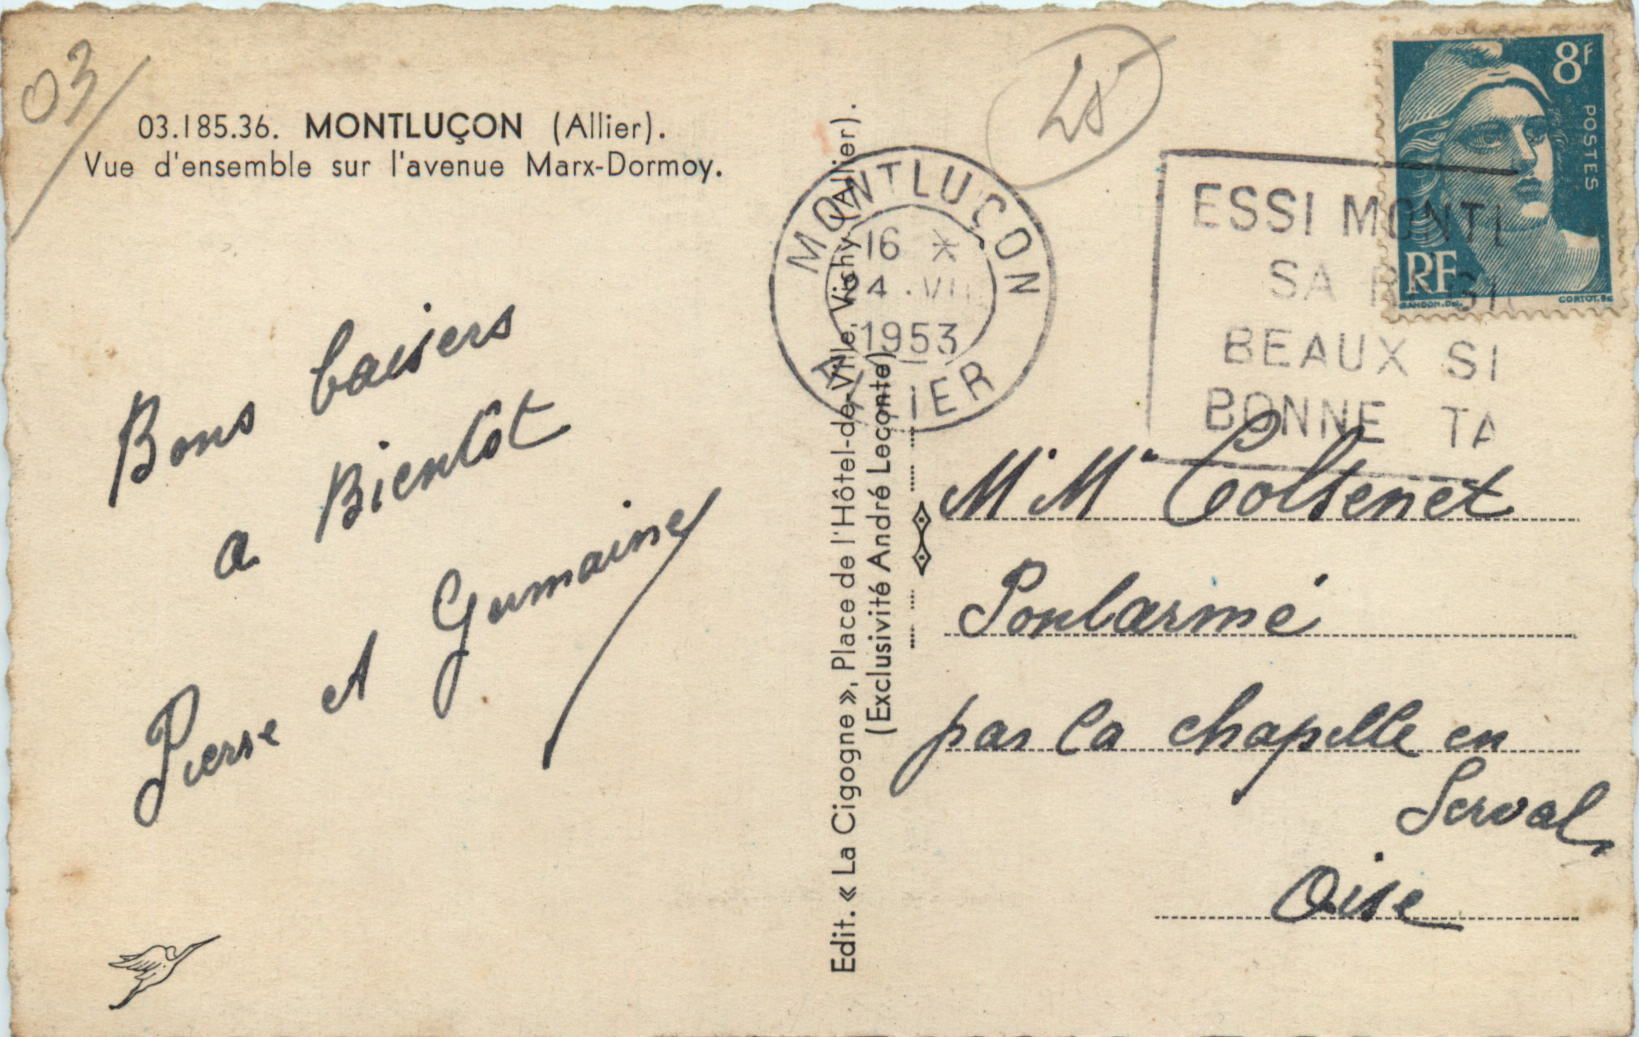 03
03.185.36. MONTLUÇON (Allier).
Vue d'ensemble sur l'avenue Marx-Dormoy.
Bons baisers
a Bientôt
Pierre et Germaine
Edit. « La Cigogne », Place de l'Hôtel-de-Ville, Vichy (Allier).
(Exclusivité André Leconte)
MONTLUÇON
16 *
24 .VII
1953
ALLIER
ESSI MONTL
SA REGI
BEAUX SI
BONNE TA
8F
POSTES
RF
GANDON.Del.
CORTOT.Sc
Mr Me Coltenet
Pontarmé
par la chapelle en
Serval
Oise